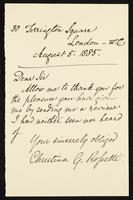 30 Torrington Square
London - W.C.
August 5. 1885.
Dear Sir
Allow me to thank you for
the pleasure you have given
me by sending me a review
I had neither seen nor heard
of.
Yours sincerely obliged
Christina G. Rossetti